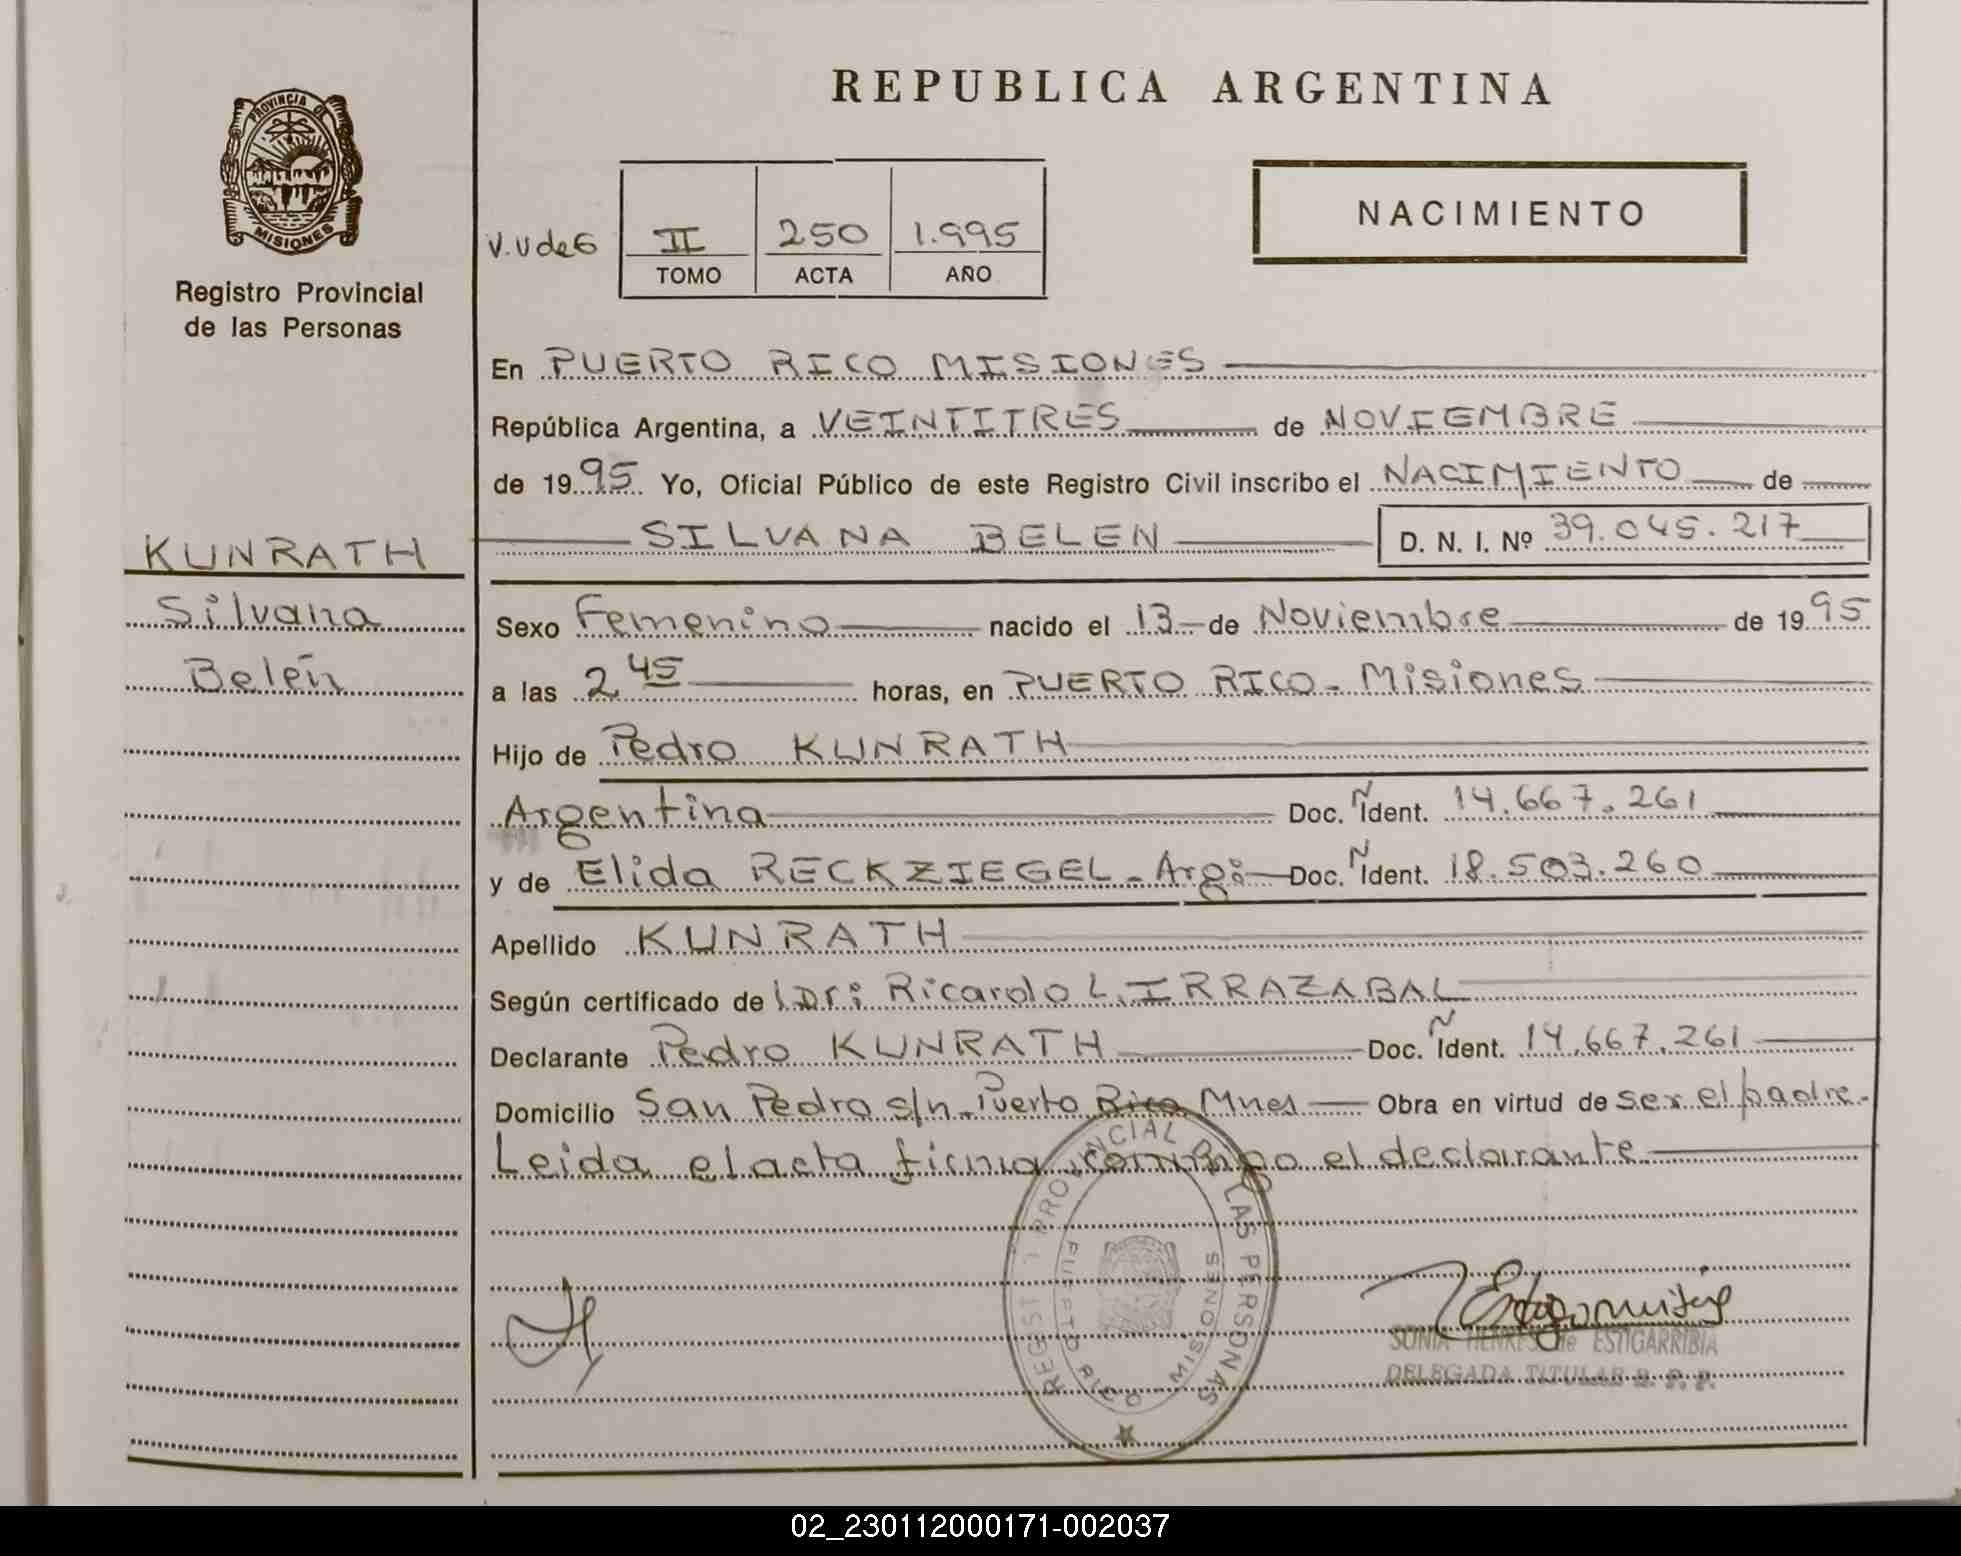 REPUBLICA ARGENTINA
PROVINCIA DE
MISIONES
Registro Provincial
de las Personas
V.U de 6
II 250 1.995
TOMO ACTA AÑO
NACIMIENTO
En PUERTO RICO MISIONES
República Argentina, a VEINTITRES de NOVIEMBRE
de 1995 Yo, Oficial Público de este Registro Civil inscribo el NACIMIENTO de
SILVANA BELEN D. N. I. Nº 39.045.217
KUNRATH
Silvana
Belén
Sexo Femenino nacido el 13 de Noviembre de 1995
a las 2,45 horas, en PUERTO RICO - Misiones
Hijo de Pedro KUNRATH
Argentina Doc. Ñ Ident. 14.667.261
y de Elida RECKZIEGEL - Arg: Doc. Ñ Ident. 18.503.260
Apellido KUNRATH
Según certificado de Dr: Ricardo L. IRRAZABAL
Declarante Pedro KUNRATH Doc. Ñ Ident. 14.667.261
Domicilio San Pedro s/n. Puerto Rico Mnes Obra en virtud de ser el padre.
Leida el acta firma conmigo el declarante
REGIST PROVINCIAL DE LAS PERSONAS
PUERTO RICO MISIONES
SONIA HENRES de ESTIGARRIBIA
DELEGADA TITULAR R. P. P.
02_230112000171-002037